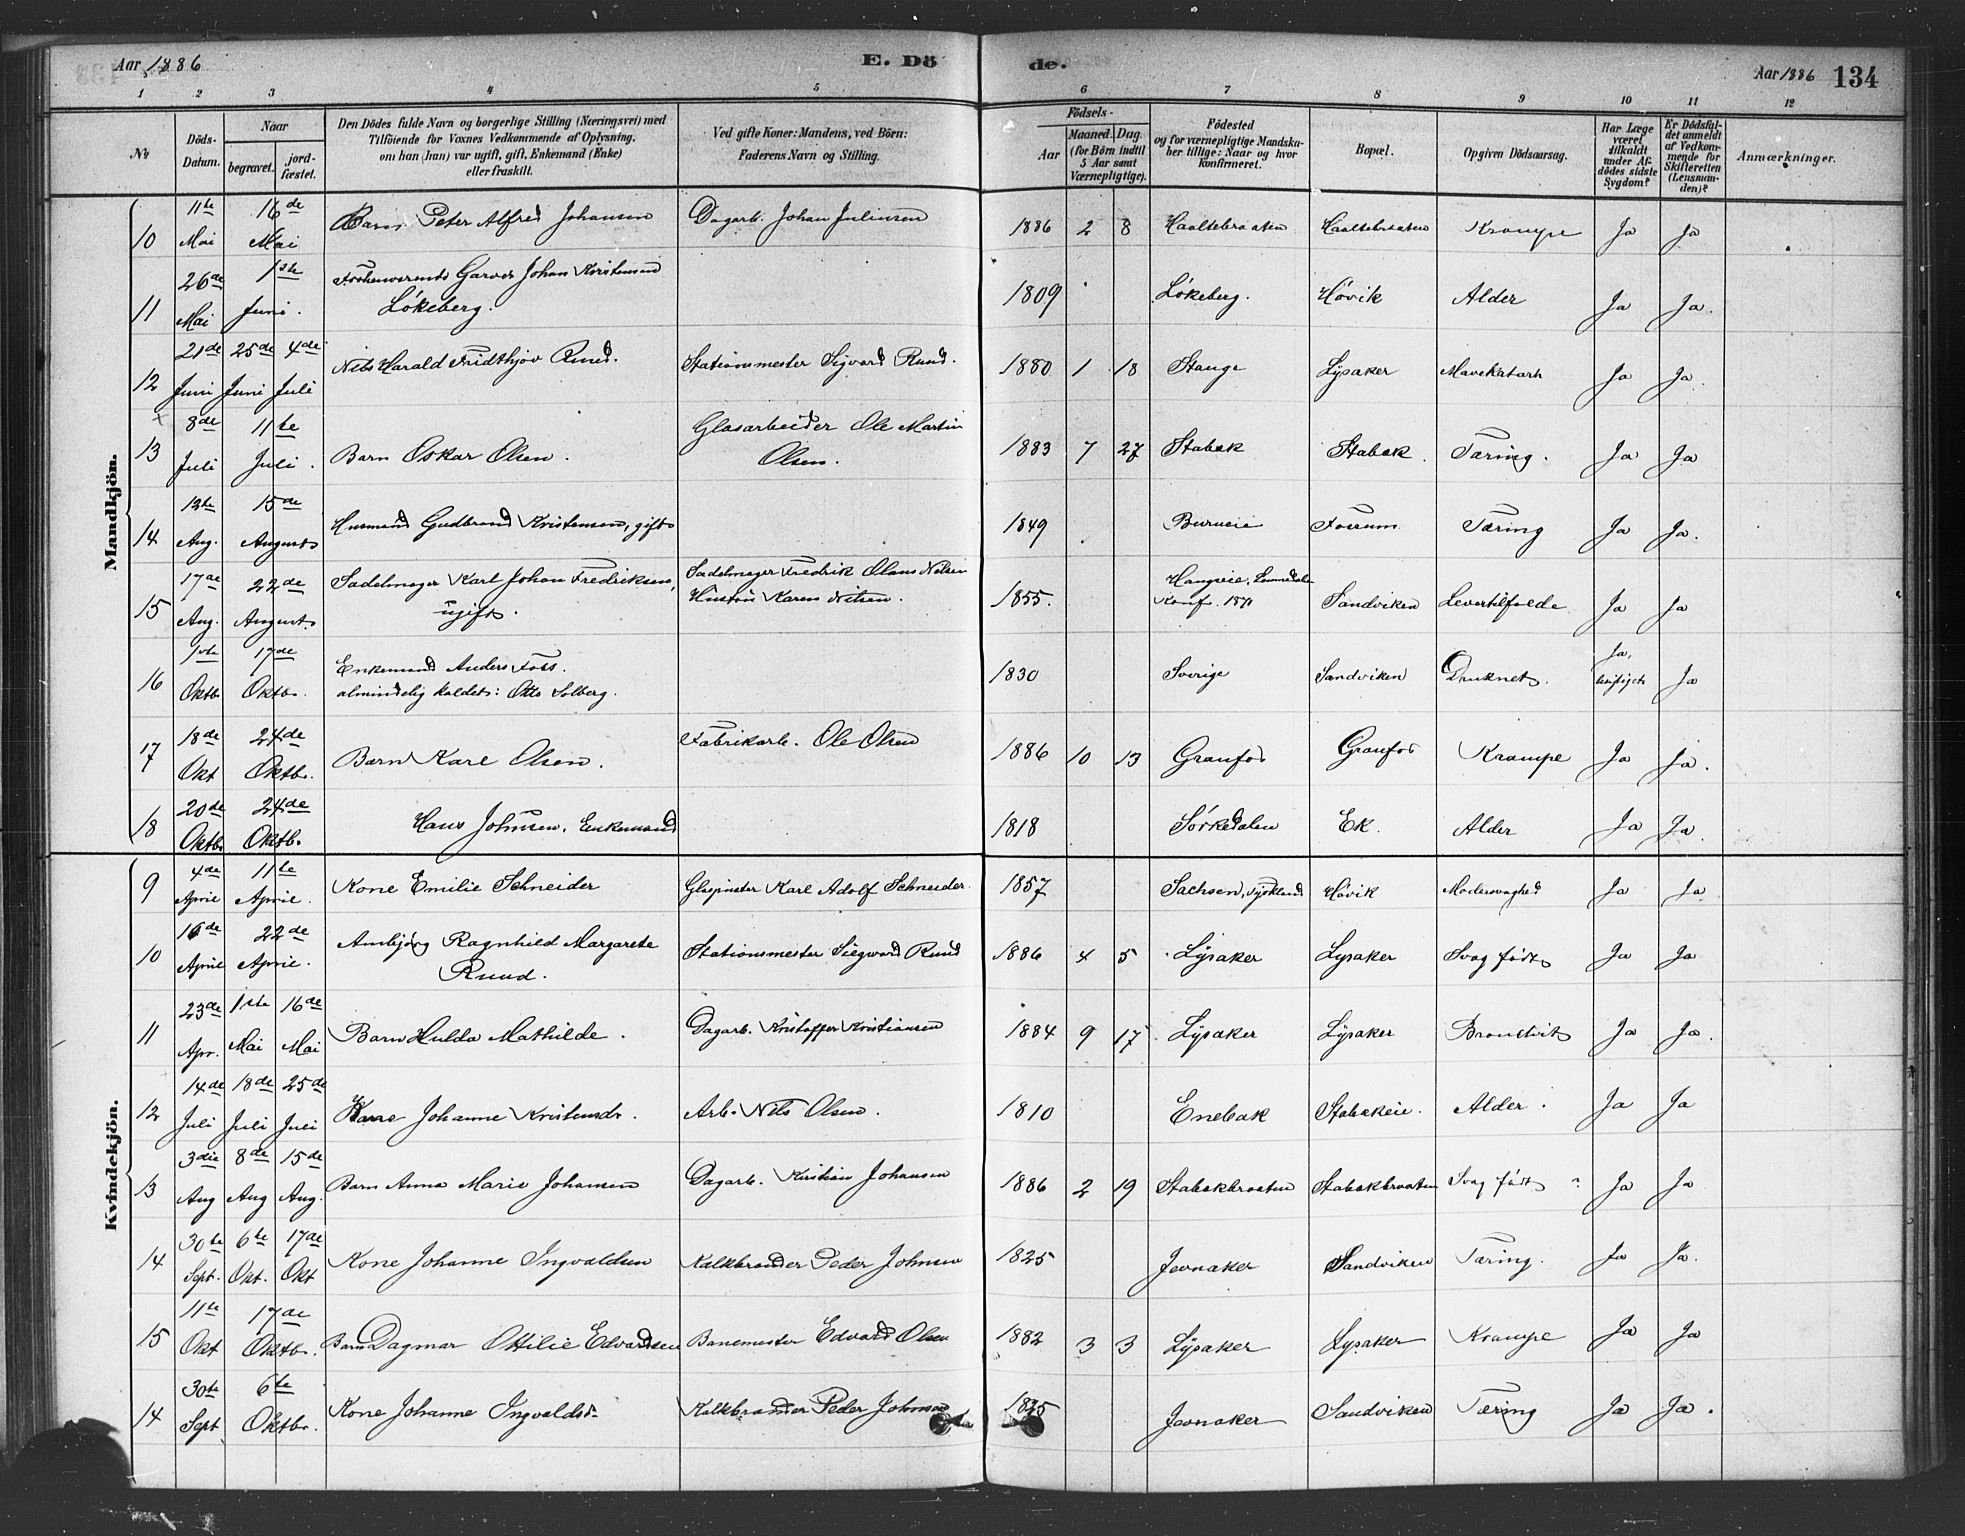 Aar 1886 E. Dö de. Aar 1886 134
1 2 3 4 5 6 7 8 9 10 11 12
No. Döds-Datum. Naar begravet. jordfæstet. Den Dödes fulde Navn og borgerlige Stilling (Næringsvei) med Tilföiende for Voxnes Vedkommende af Oplysning, om han (hun) var ugift, gift, Enkemand (Enke) eller fraskilt. Ved gifte Koner: Mandens, ved Börn: Faderens Navn og Stilling. Födsels- Aar Maaned. Dag. (for Börn indtil 5 Aar samt Værnepligtige). Födested og for værnepligtige Mandskaber tillige: Naar og hvor konfirmeret. Bopæl. Opgiven Dödsaarsag. Har Læge været tilkaldt under Afdödes sidste Sygdom? Er Dödsfaldet anmeldt af Vedkommende for Skifteretten (Lensmanden)? Anmærkninger.
Mandkjön.
10 11te Mai 16de Mai Barn Peter Alfred Johansen Dagarb. Johan Juliusen 1886 2 8 Haaltebraaten Haaltebraaten Krampe Ja Ja
11 26de Mai 1ste Juni. Garver Johan Kristensen Lökeberg. 1809 Lökeberg. Hövik Alder Ja Ja.
12 21de Juni 25de Juni 4de Juli Nils Harald Fridthjov Ruud. Stationsmester Sigvard Ruud. 1880 1 18 Stange Lysaker Mavekatarh Ja Ja.
13 8de Juli 11te Juli. Barn Oskar Olsen. Glasarbeider Ole Martin Olsen. 1883 7 27 Stabæk Stabæk. Tæring. Ja Ja
14 12te Aug. 15de August Husmand Gudbrand Kristensen, gift 1849 Burueie Fossum Tæring Ja Ja.
15 17de Aug. 22de August. Sadelmager Karl Johan Fredriksen, ugift. Sadelmager Fredrik Olaus Nilsen Hustru Karen Nilsen. 1855. Konf. 1870 Sandviken Levertilfælde Ja Ja
16 1ste Oktb. 17de Oktb. Enkemand Anders Foss. almindelig kaldet: Otto Solberg. 1830 Sverige Sandviken Druknet. Ja, Ja
17 18de Okt 24de Oktb. Barn Karl Olsen. Fabrikarb. Ole Olsen 1886 10 13 Granfos Granfos Krampe Ja Ja.
18 20de Oktb. 24de Oktb. Hans Johnsen, Enkemand 1818 Sörkedalen Ek. Alder Ja Ja.
Kvindekjön.
9 4de April 11te April. Kone Emilie Schneider Glaspuster Karl Adolf Schneider. 1857 Sachsen, Tyskland Hövik Ja Ja.
10 16de April 22de April. Ambjörg Ragnhild Margarete Ruud. Stationsmester Siegward Ruud 1886 4 5 Lysaker Lysaker Svag födt Ja Ja
11 23de Apr. 1ste Mai 16de Mai Barn Hulda Mathilde. Dagarb. Kristoffer Kristiansen 1884 9 17 Lysaker Lysaker Ja Ja.
12 14de Juli 18de Juli 25de Juli Johanne Kristensdr. Arb. Nils Olsen. 1810 Enebak Stabækeie. Alder. Ja Ja
13 3die Aug 8de Aug 15de Aug. Barn Anna Marie Johansen Dagarb. Kristian Johansen 1886 2 19 Stabækbraaten Stabækbraaten Svag födt ? Ja Ja
14 30te Sept. 6te Okt. 17de Okt Kone Johanne Ingvaldsen Kalkbrænder Peder Johnsen 1825 Jevnaker Sandviken Tæring. Ja Ja.
15 11te Okt 17de Oktb. Barn Dagmar Ottilie Edvardsen Banemester Edvard Olsen 1882 3 3 Lysaker Lysaker Krampe Ja Ja
14 30te Sept 6te Oktb. Kone Johanne Ingvaldsd. Kalkbrænder Peder Johnsen 1825 Jevnaker Sandviken Tæring Ja Ja.